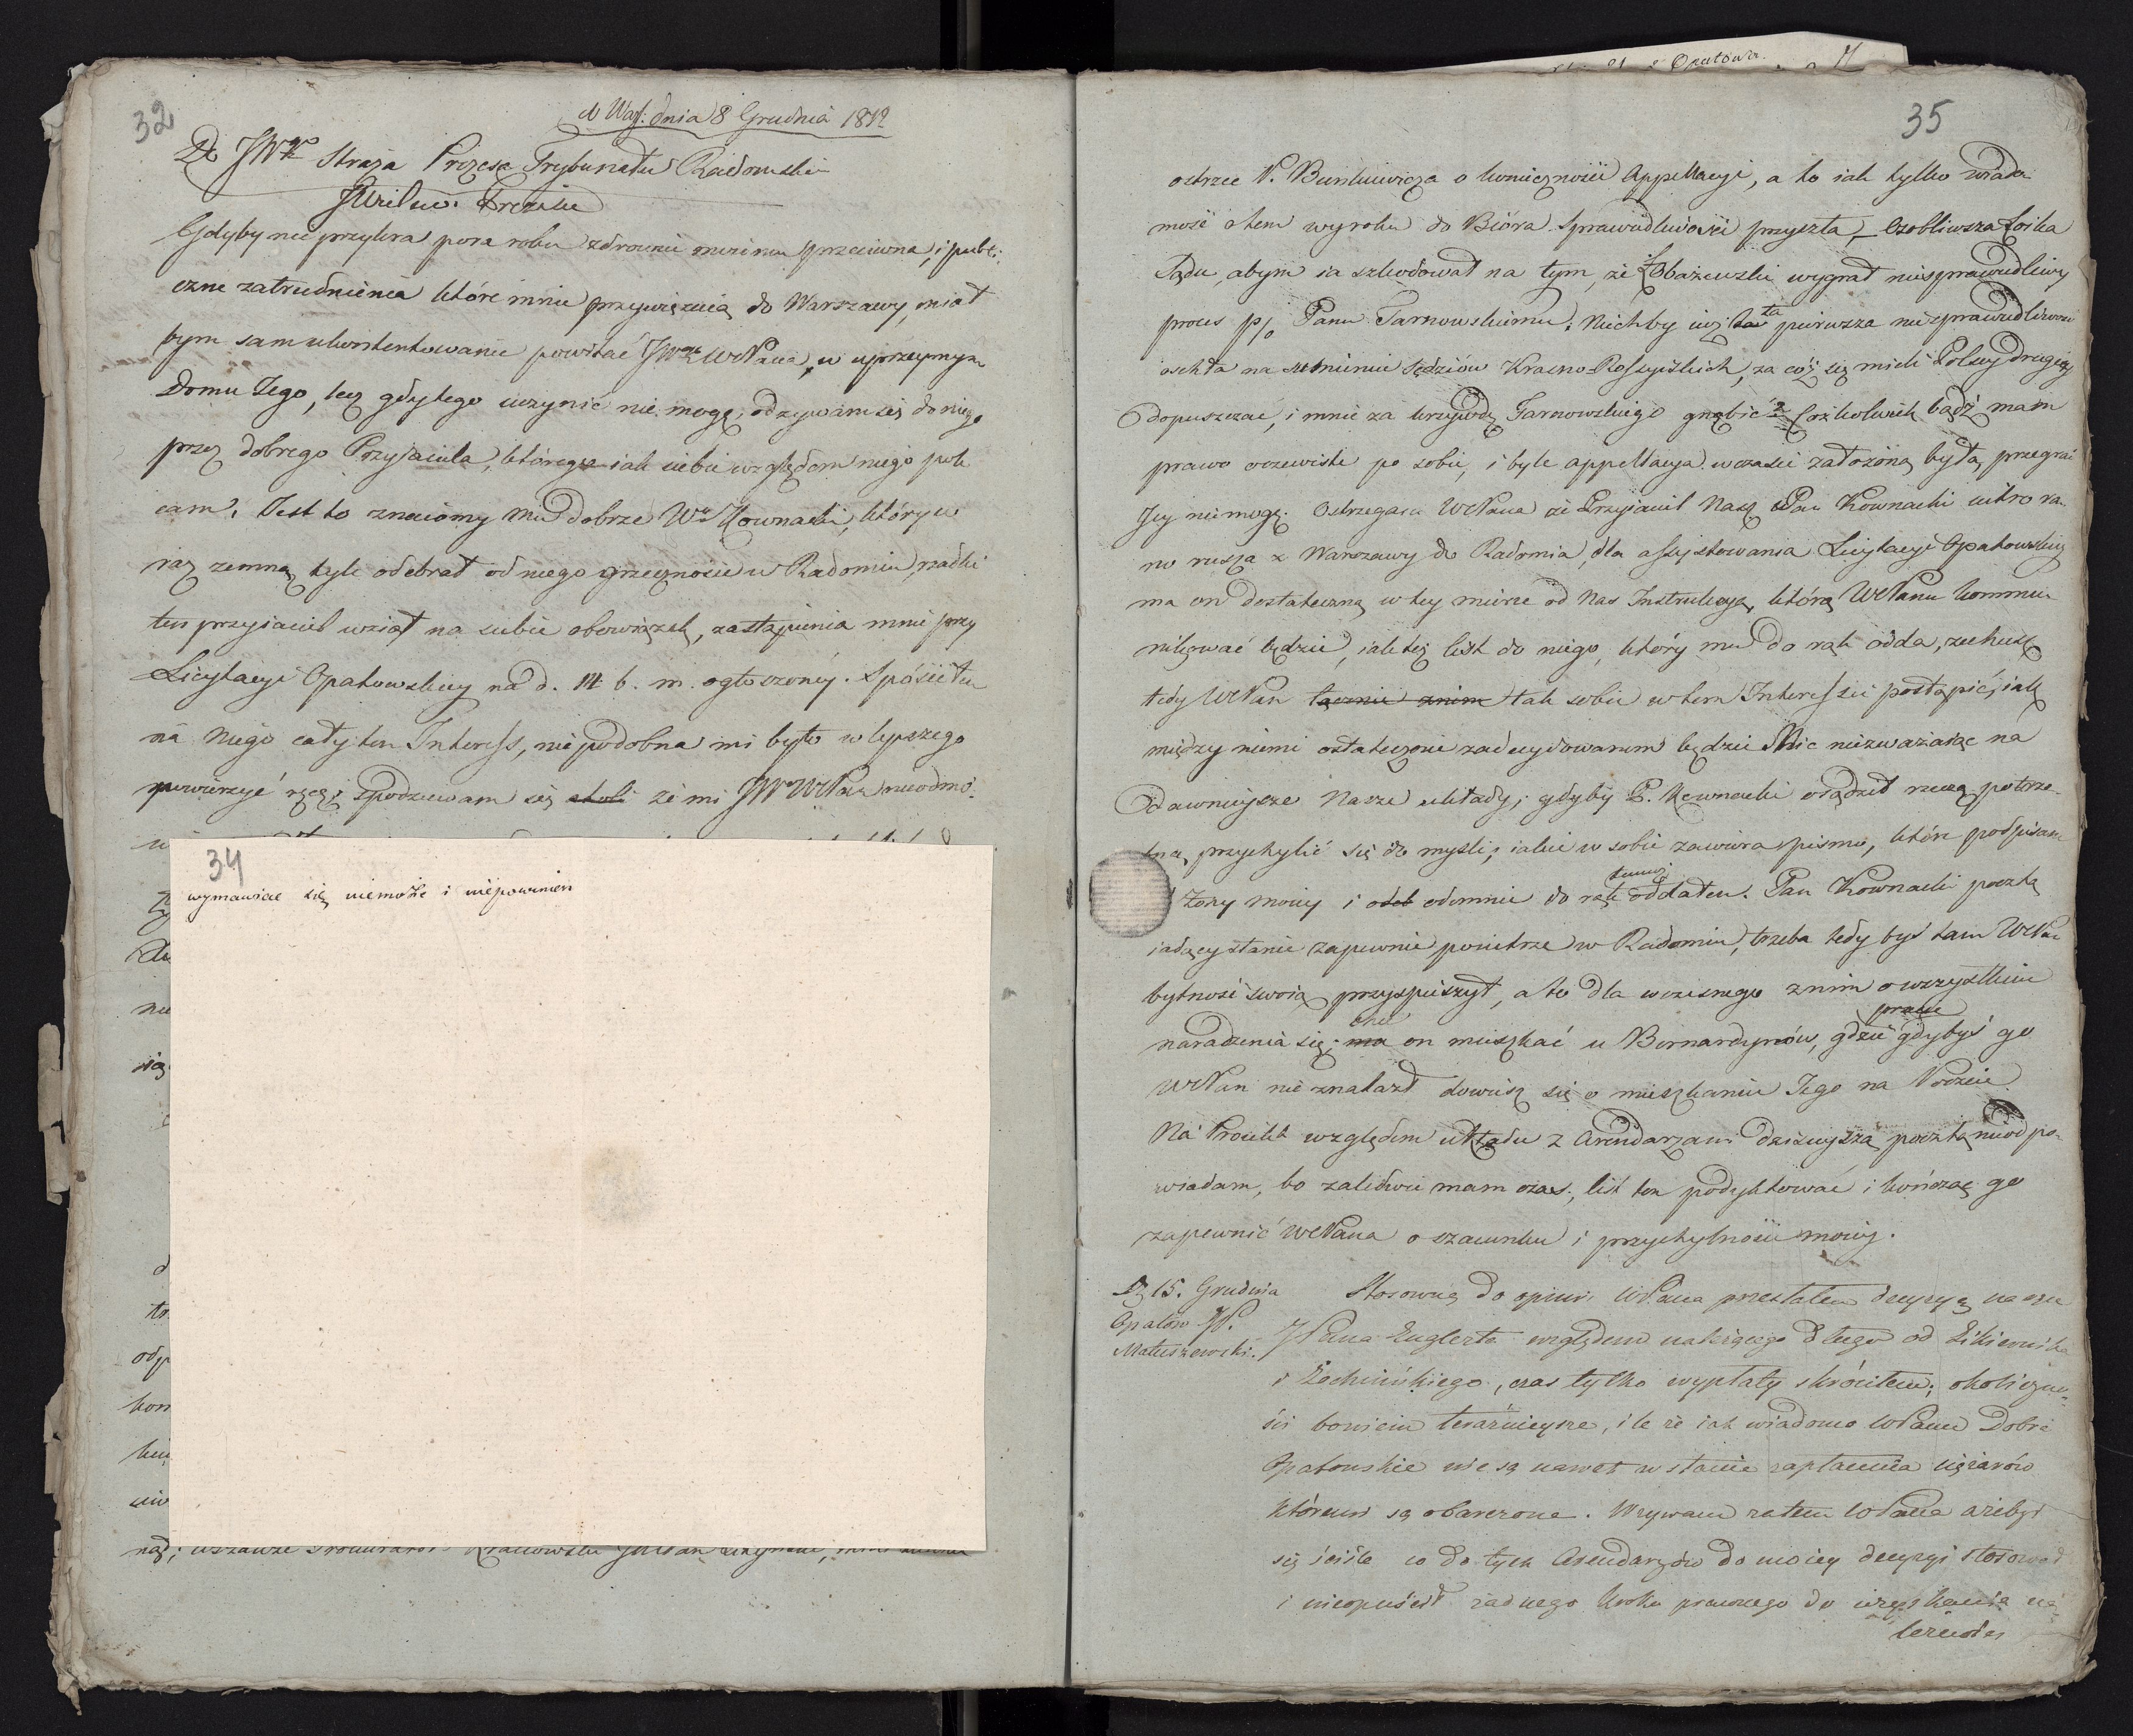 32
d Wars: dnia 8 Grudnia 1812
Do JWo Straża Prezesa Trybunału Radomskie
JWielm: Prezesie
Gdyby nie przykra pora roku zdrowiu moiemu przeciwna, i publi:
czne zatrudnienia które mnie przywięzuią do Warszawy, miał
bym sam ukontentowanie powitać JWo WMPana, w uprzeymym
Domu Jego, lecz gdy tego uczynić nie mogę, odzywam się do niego
przez dobrego Przyjaciela, którego iak siebie względom niego pole
cam. Jest to znaiomy mu dobrze Wo Kownacki, który w
raz zemną tyle odebrał od niego grzeczności w Radomiu, rzadki
ten przyiaciel wziął na siebie obowiązek, zastąpienia mnie przy
Licytacyi Opatowskiey na d. 14 b. m. ogłoszoney. Spóściłem
na niego cały ten Interess, niepodobna mi było w lepszego
powierzyć ręce; spodziewam się że mi JWo WMPan nieodmó:
34
wymawiać się niemoże i niepowinien
35
ostrzec P. Bunkiewicza o konieczności Appellacyi, a to iak tylko wiado
mość o tem wyroku do Bióra Sprawiedliwości przyszła, Osobliwsza Loika
Sądu, abym ia szkodował na tym, że Łobażewski wygrał niesprawiedliwy
proces p/o Panu Tarnowskiemu. Niechby iuż ta pierwsza niesprawiedliwość
oschła na sumieniu Sędziów Krasno-Rossyiskich, za cóż się mieli Polscy drugiey
dopuszczać, i mnie za krzywdę Tarnowskiego gnębić? Cożkolwiek bądź mam
prawo oczewiste po sobie, i byle appellacya wczasie założoną była, przegrać
Jey niemogę. Ostrzegam WMPana że Przyiaciel Nasz Pan Kownacki iutro ra-
no rusza z Warszawy do Radomia, dla assystowania Licytacyi Opatowskiey
ma on dostateczną w tey mierze od Nas Instrukcyą, którą WMPanu kommu-
nikować będzie, iak też list do niego, który mu do rąk odda, zechcesz
tedy WMPan łącznie znim tak sobie w tem Interessie postąpić, iak
między niemi ostatecznie zadecydowanem będzie Nic niezważaiąc na
dawnieysze Nasze układy; gdyby P. Kownacki osądził rzeczą potrze-
bną, przychylić się do myśli, iakie w sobie zawiera pismo, które podpisane
Żony moiey i odemnie do rąk oddałem. Pan Kownacki pocztą
iadący stanie zapewnie poiutrze w Radomiu, trzeba tedy byś tam WMPan
bytność swoią przyspieszył, a to dla wczesnego znim o wszystkim
naradzenia się; chce on mieszkać u Bernardynów, gdzie gdybyś go
WMPan nie znalazł dowiesz się o mieszkaniu Jego na Poczcie
Na Proiekt względem układu z Arendarzami dzisieyszą pocztą nieodpo-
wiadam, bo zaledwie mam czas, list ten podyktować i kończąc go
zapewnić WMPana o szacunku i przychylności moiey.
Dn 15. Grudnia
Opatów JP.
Matuszewski.
Stosownie do opinii WPana przesłałem decyzyą na ręce
JPana Englerta względem należącego długu od Likiernika
i Zochcińskiego, czas tylko wypłaty skróciłem; okoliczno-
ści bowiem teraźnieysze, i te że iak wiadomo WPanu Dobra
Opatowskie nie są nawet w stanie zapłacenia ciężarów
któremi są obarczone. Wzywam zatem WPana ażebyś
się ściśle co do tych Arendarzów do moiey decyzyi stosował
i nieopuścił żadnego kroku prawnego do uzyskania na-
leżności